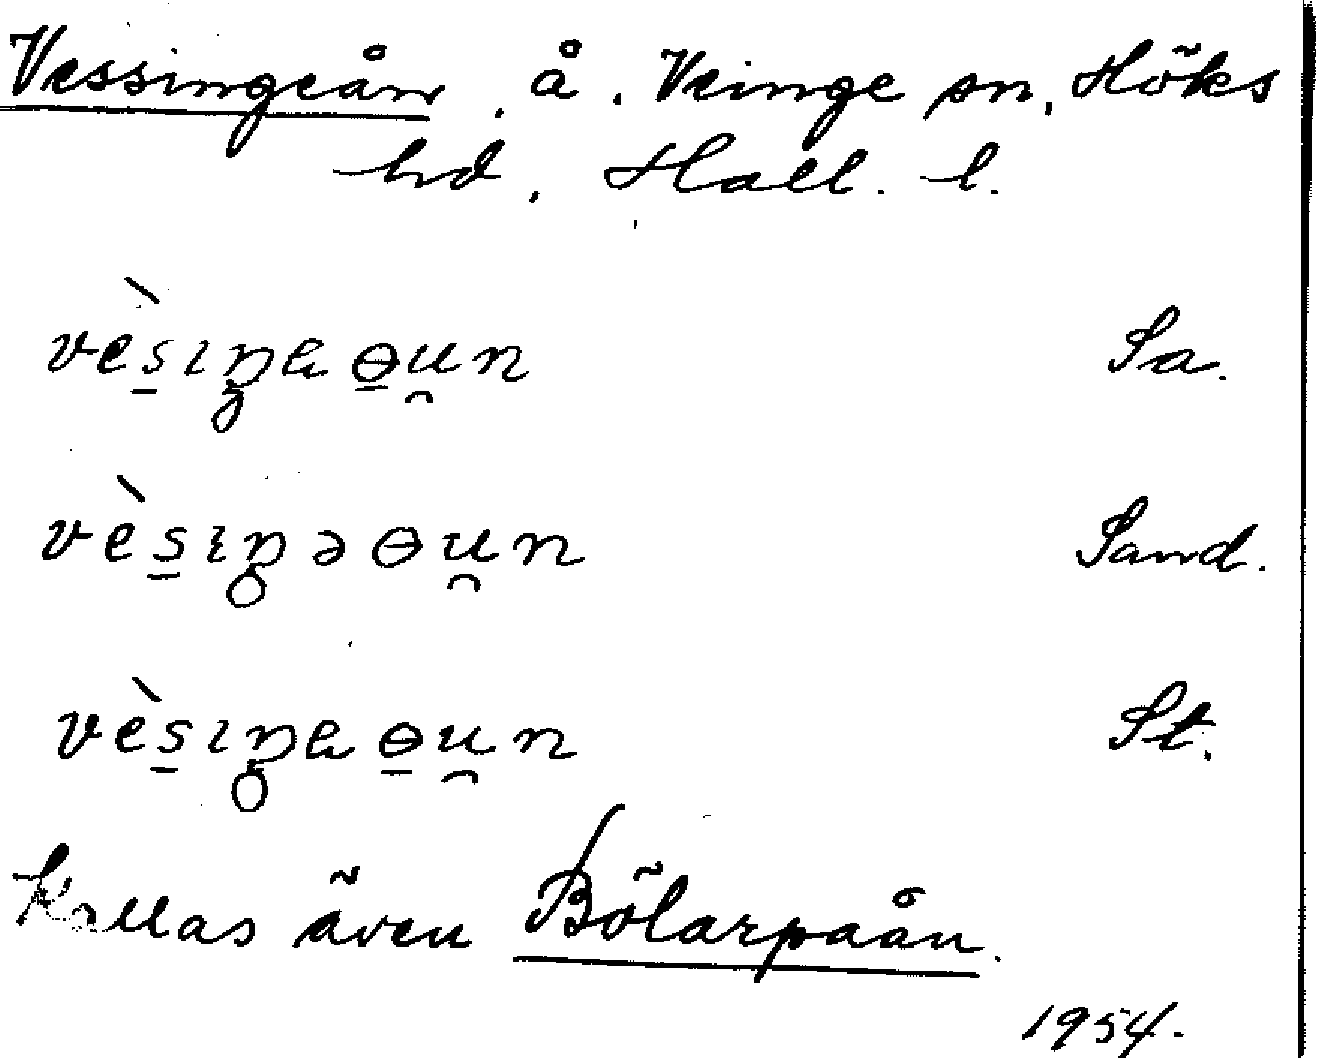 Vessingeån, å. Veinge sn, Höks
hd, Hall. l.
vès̠ıŋ̥ɐɵ̠u̯n Sa.
vès̠ıŋ̥əɵu̯n Sand.
vès̠ıŋ̥ɐɵ̠u̯n St.
Kallas även Bölarpaån.
1954.